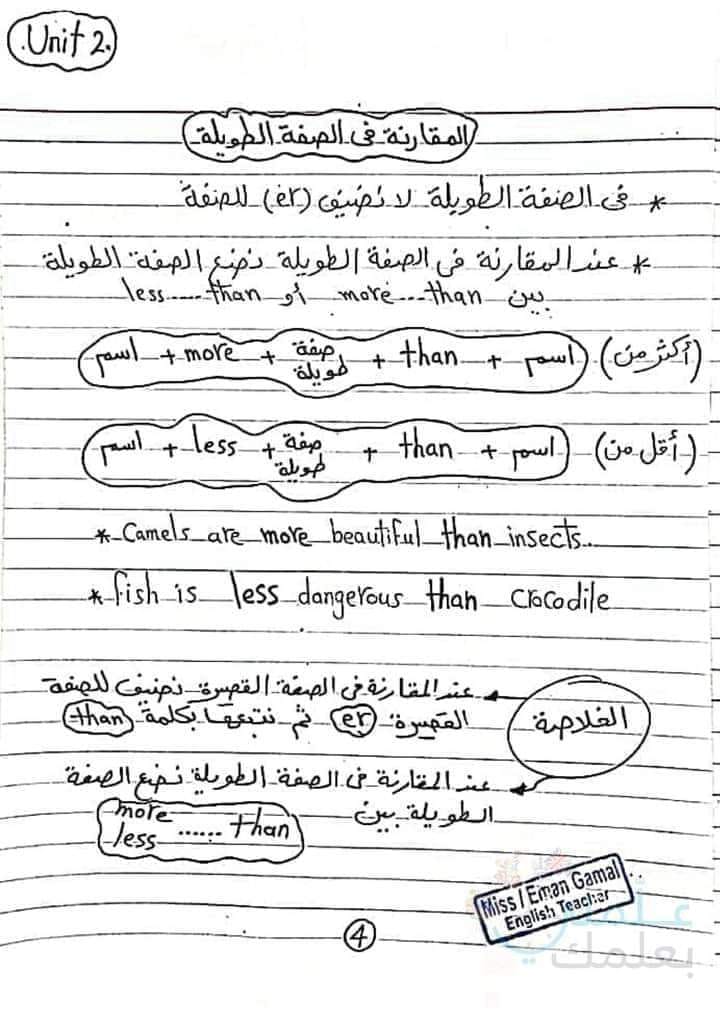 Unit 2.
المقارنة فى الصفة الطويلة
* فى الصفة الطويلة لا نضيف (er) للصفة
* عند المقارنة فى الصفة الطويلة نضع الصفة الطويلة
بين more...than أو less......than
(أكثر من) اسم + than + صفة طويلة + more + اسم
(أقل من) اسم + than + صفة طويلة + less + اسم
* Camels are more beautiful than insects.
* fish is less dangerous than crocodile
الخلاصة
عند المقارنة فى الصفة القصيرة نضيف للصفة
القصيرة er ثم نتبعها بكلمة than
عند المقارنة فى الصفة الطويلة نضع الصفة
الطويلة بين
more
less ...... than
Miss / Eman Gamal
English Teacher
علمني
بعلمك
4